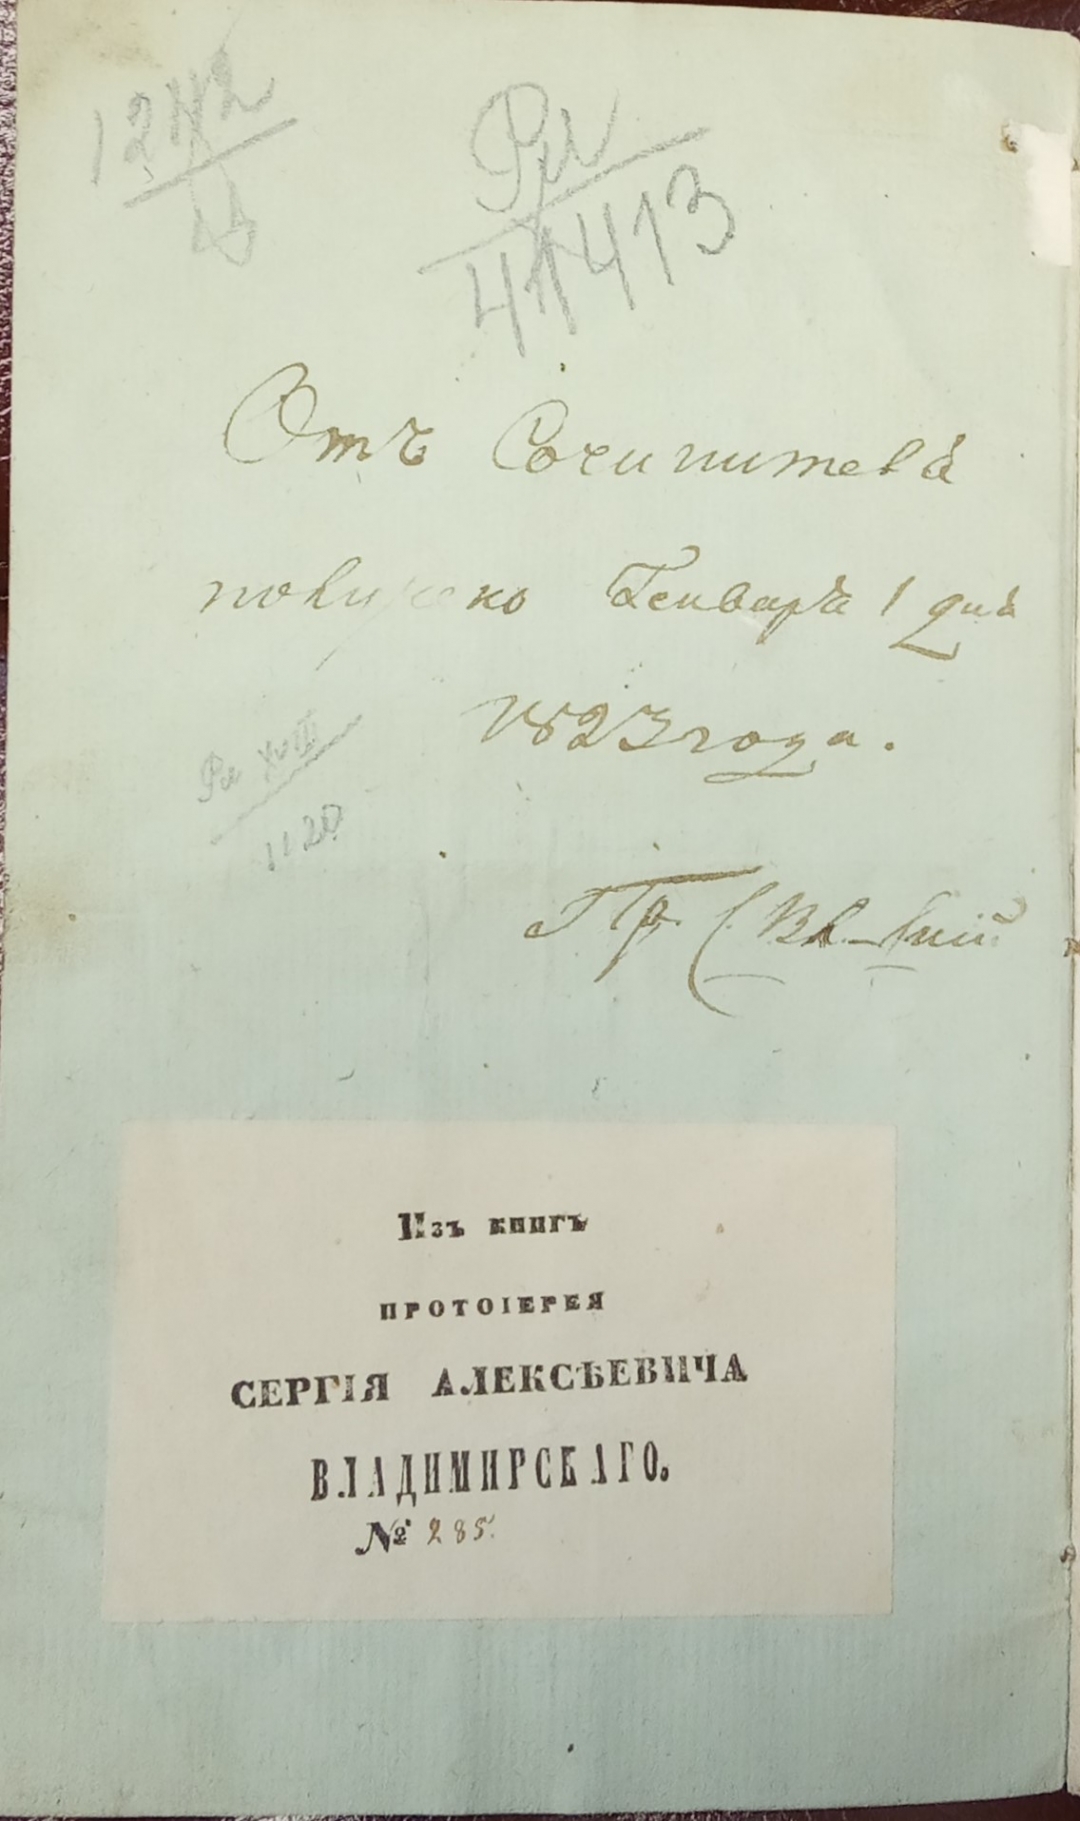 1242
Ри
41413
Отъ Сочинителя
получено Генваря 1 дня
1823 года.
Рм XVIII
1120
Изъ книгъ
ПРОТОІЕРЕЯ
СЕРГІЯ АЛЕКСѢЕВИЧА
ВЛАДИМИРСКАГО.
№ 285.